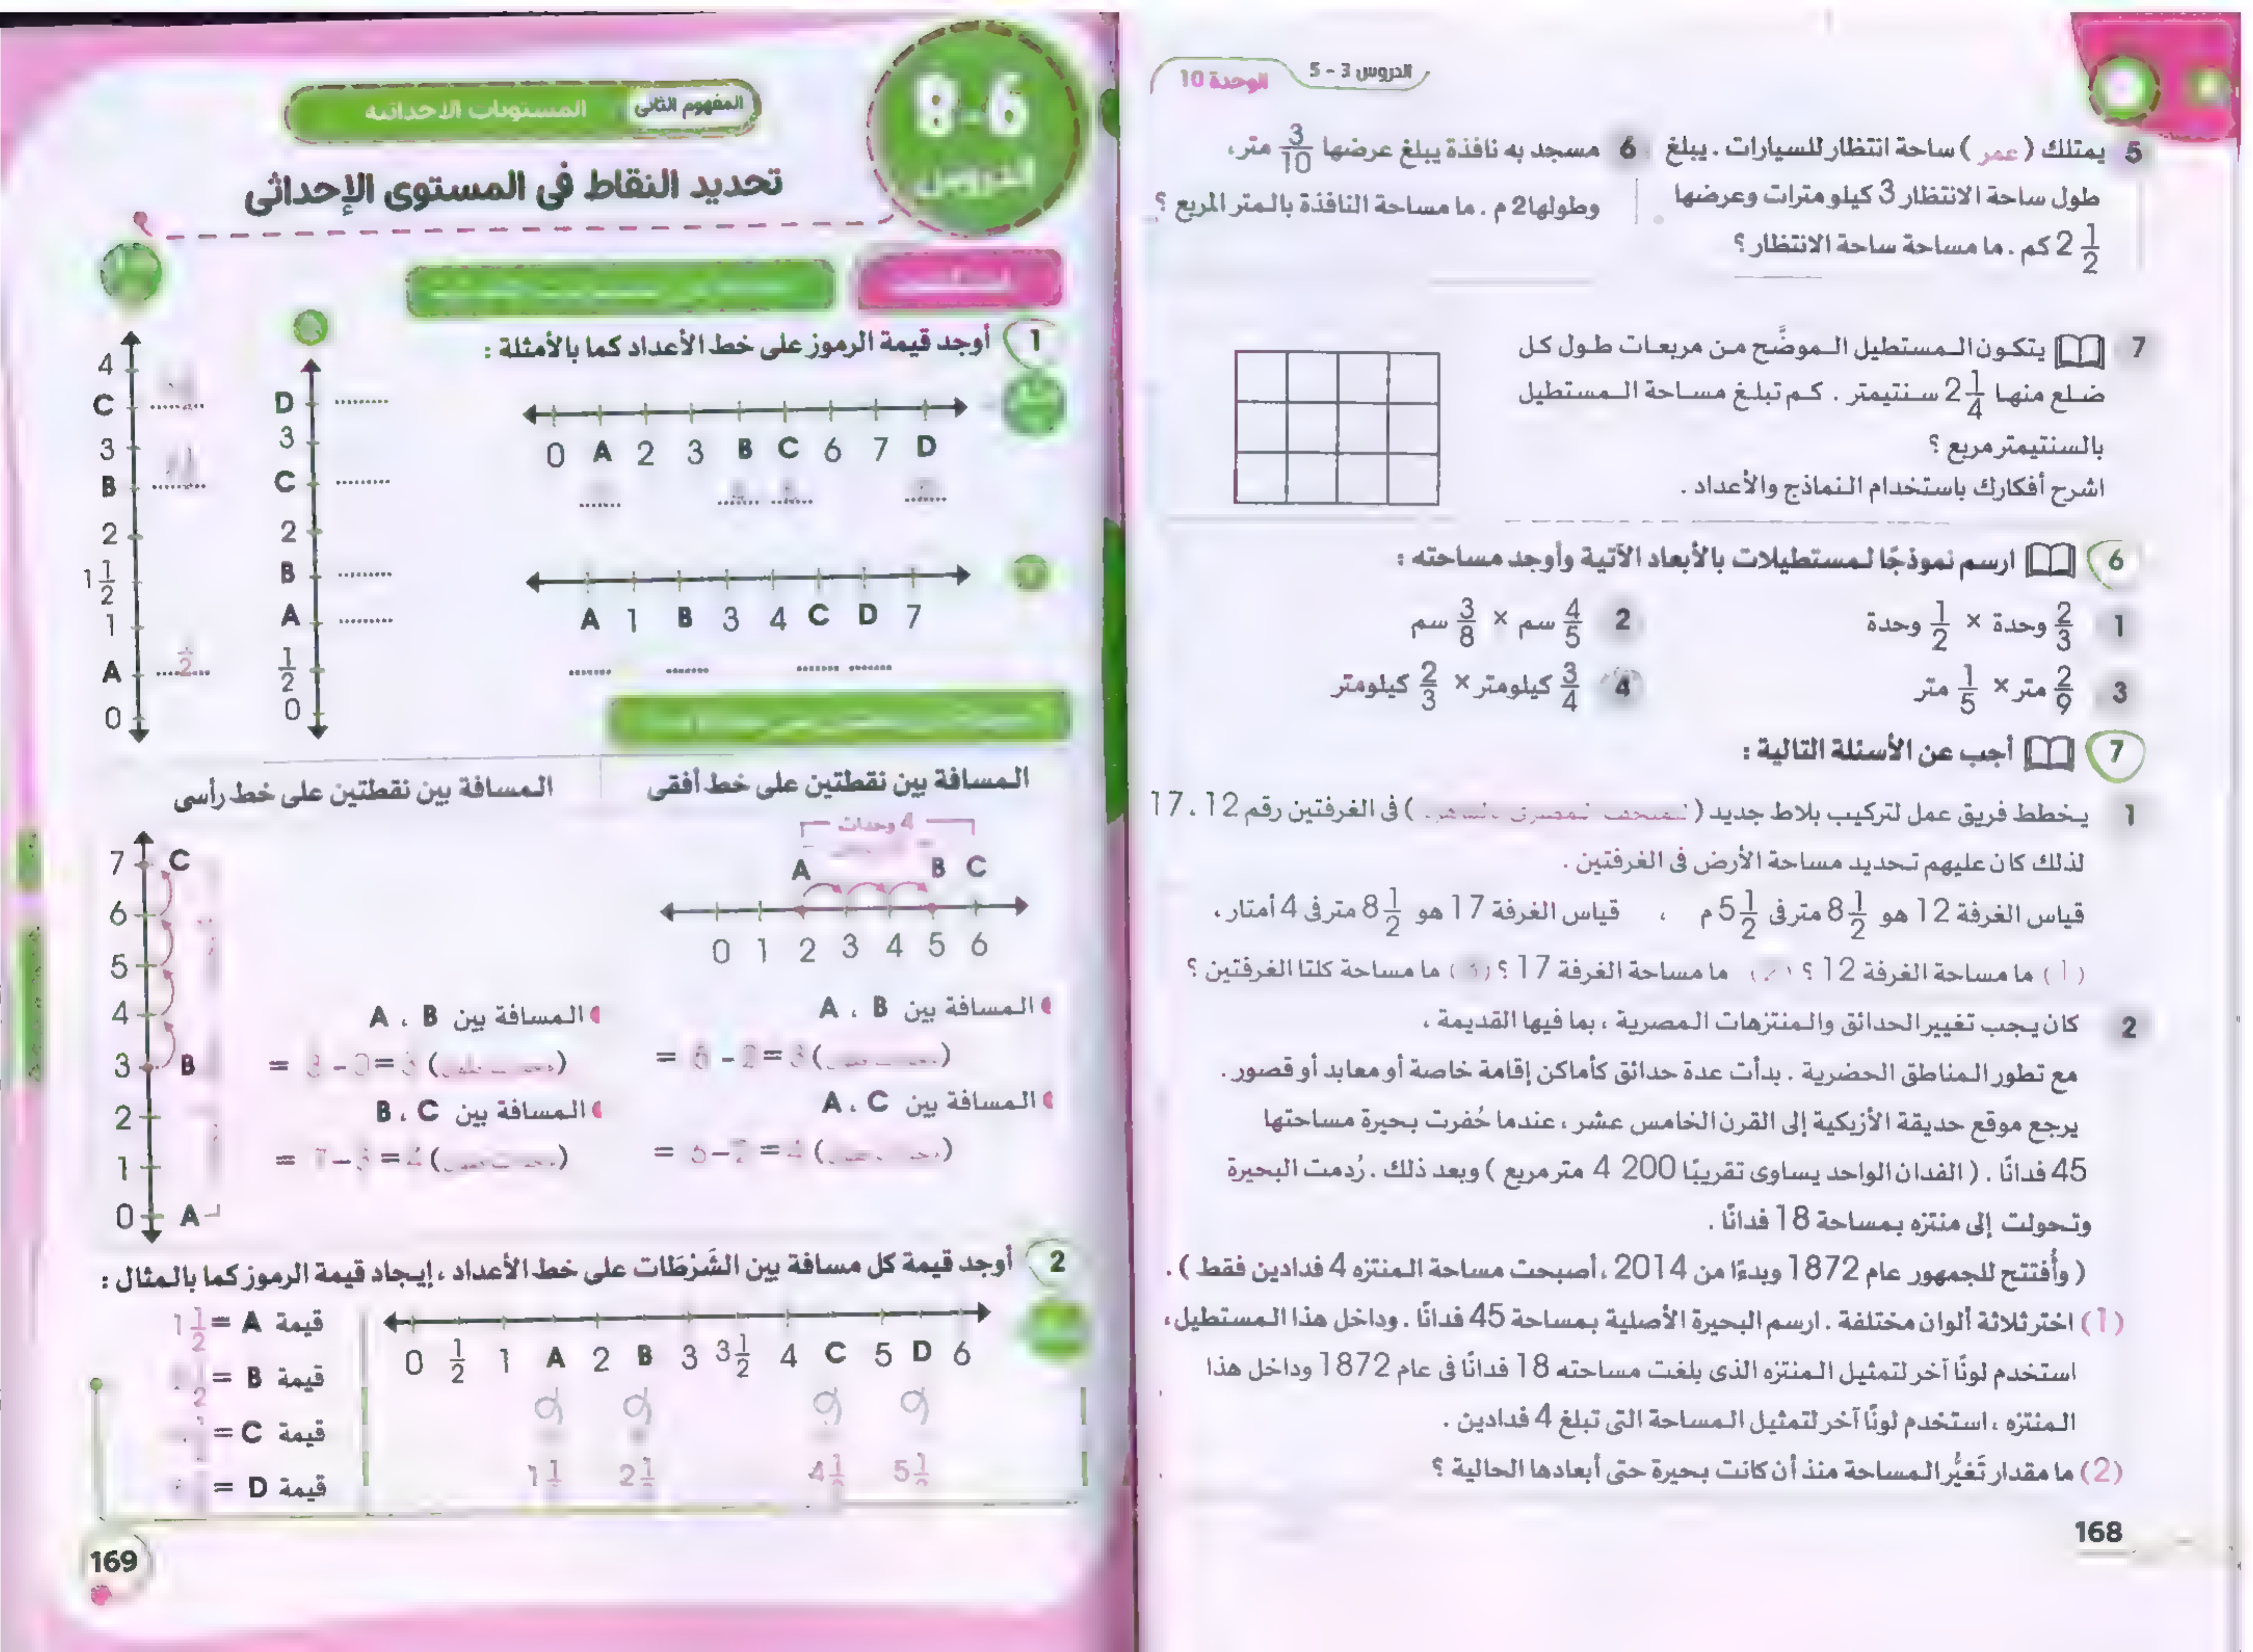 الدروس 3 - 5
الوحدة 10
5 يمتلك ( عمر ) ساحة انتظار للسيارات . يبلغ
طول ساحة الانتظار 3 كيلو مترات وعرضها
2 1/2 كم . ما مساحة ساحة الانتظار ؟
6 مسجد به نافذة يبلغ عرضها 3/10 متر،
وطولها 2 م . ما مساحة النافذة بالمتر المربع ؟
7 يتكون المستطيل الموضَّح من مربعات طول كل
ضلع منها 2 1/4 سنتيمتر . كم تبلغ مساحة المستطيل
بالسنتيمتر مربع ؟
اشرح أفكارك باستخدام النماذج والأعداد .
6 ارسم نموذجًا لمستطيلات بالأبعاد الآتية وأوجد مساحته :
1 2/3 وحدة × 1/2 وحدة
2 4/5 سم × 3/8 سم
3 2/9 متر × 1/5 متر
4 3/4 كيلومتر × 2/3 كيلومتر
7 أجب عن الأسئلة التالية :
1 يخطط فريق عمل لتركيب بلاط جديد ( ) فى الغرفتين رقم 12 ، 17
لذلك كان عليهم تحديد مساحة الأرض فى الغرفتين .
قياس الغرفة 12 هو 8 1/2 متر فى 5 1/2 م ، قياس الغرفة 17 هو 8 1/2 متر فى 4 أمتار ،
(1) ما مساحة الغرفة 12 ؟ ما مساحة الغرفة 17 ؟ ما مساحة كلتا الغرفتين ؟
2 كان يجب تغيير الحدائق والمنتزهات المصرية ، بما فيها القديمة ،
مع تطور المناطق الحضرية . بدأت عدة حدائق كأماكن إقامة خاصة أو معابد أو قصور .
يرجع موقع حديقة الأزبكية إلى القرن الخامس عشر ، عندما حُفرت بحيرة مساحتها
45 فدانًا . ( الفدان الواحد يساوى تقريبًا 200 4 متر مربع ) وبعد ذلك . رُدمت البحيرة
وتحولت إلى منتزه بمساحة 18 فدانًا .
( وأُفتتح للجمهور عام 1872 وبدءًا من 2014 ، أصبحت مساحة المنتزه 4 فدادين فقط ) .
(1) اختر ثلاثة ألوان مختلفة . ارسم البحيرة الأصلية بمساحة 45 فدانًا . وداخل هذا المستطيل ،
استخدم لونًا آخر لتمثيل المنتزه الذى بلغت مساحته 18 فدانًا فى عام 1872 وداخل هذا
المنتزه ، استخدم لونًا آخر لتمثيل المساحة التى تبلغ 4 فدادين .
(2) ما مقدار تَغيُّر المساحة منذ أن كانت بحيرة حتى أبعادها الحالية ؟
168
8-6
الدروس
المفهوم الثانى
المستويات الاحداثية
تحديد النقاط فى المستوى الإحداثى
1 أوجد قيمة الرموز على خط الأعداد كما بالأمثلة :
0 A 2 3 B C 6 7 D
A 1 B 3 4 C D 7
D
3
C
2
B
A
1/2
0
4
C
3
B
2
1 1/2
1
A 1/2
0
المسافة بين نقطتين على خط أفقى
4 وحدات
A B C
0 1 2 3 4 5 6
المسافة بين A ، B
= 5 - 2 = 3
المسافة بين A ، C
المسافة بين نقطتين على خط رأسى
7 C
6
5
4
3 B
2
1
0 A
المسافة بين A ، B
= 3 - 0 = 3
المسافة بين B ، C
= 7 - 3 = 4
2 أوجد قيمة كل مسافة بين الشَرْطَات على خط الأعداد ، إيجاد قيمة الرموز كما بالمثال :
0 1/2 1 A 2 B 3 3 1/2 4 C 5 D 6
قيمة A = 1 1/2
قيمة B =
قيمة C =
قيمة D =
169